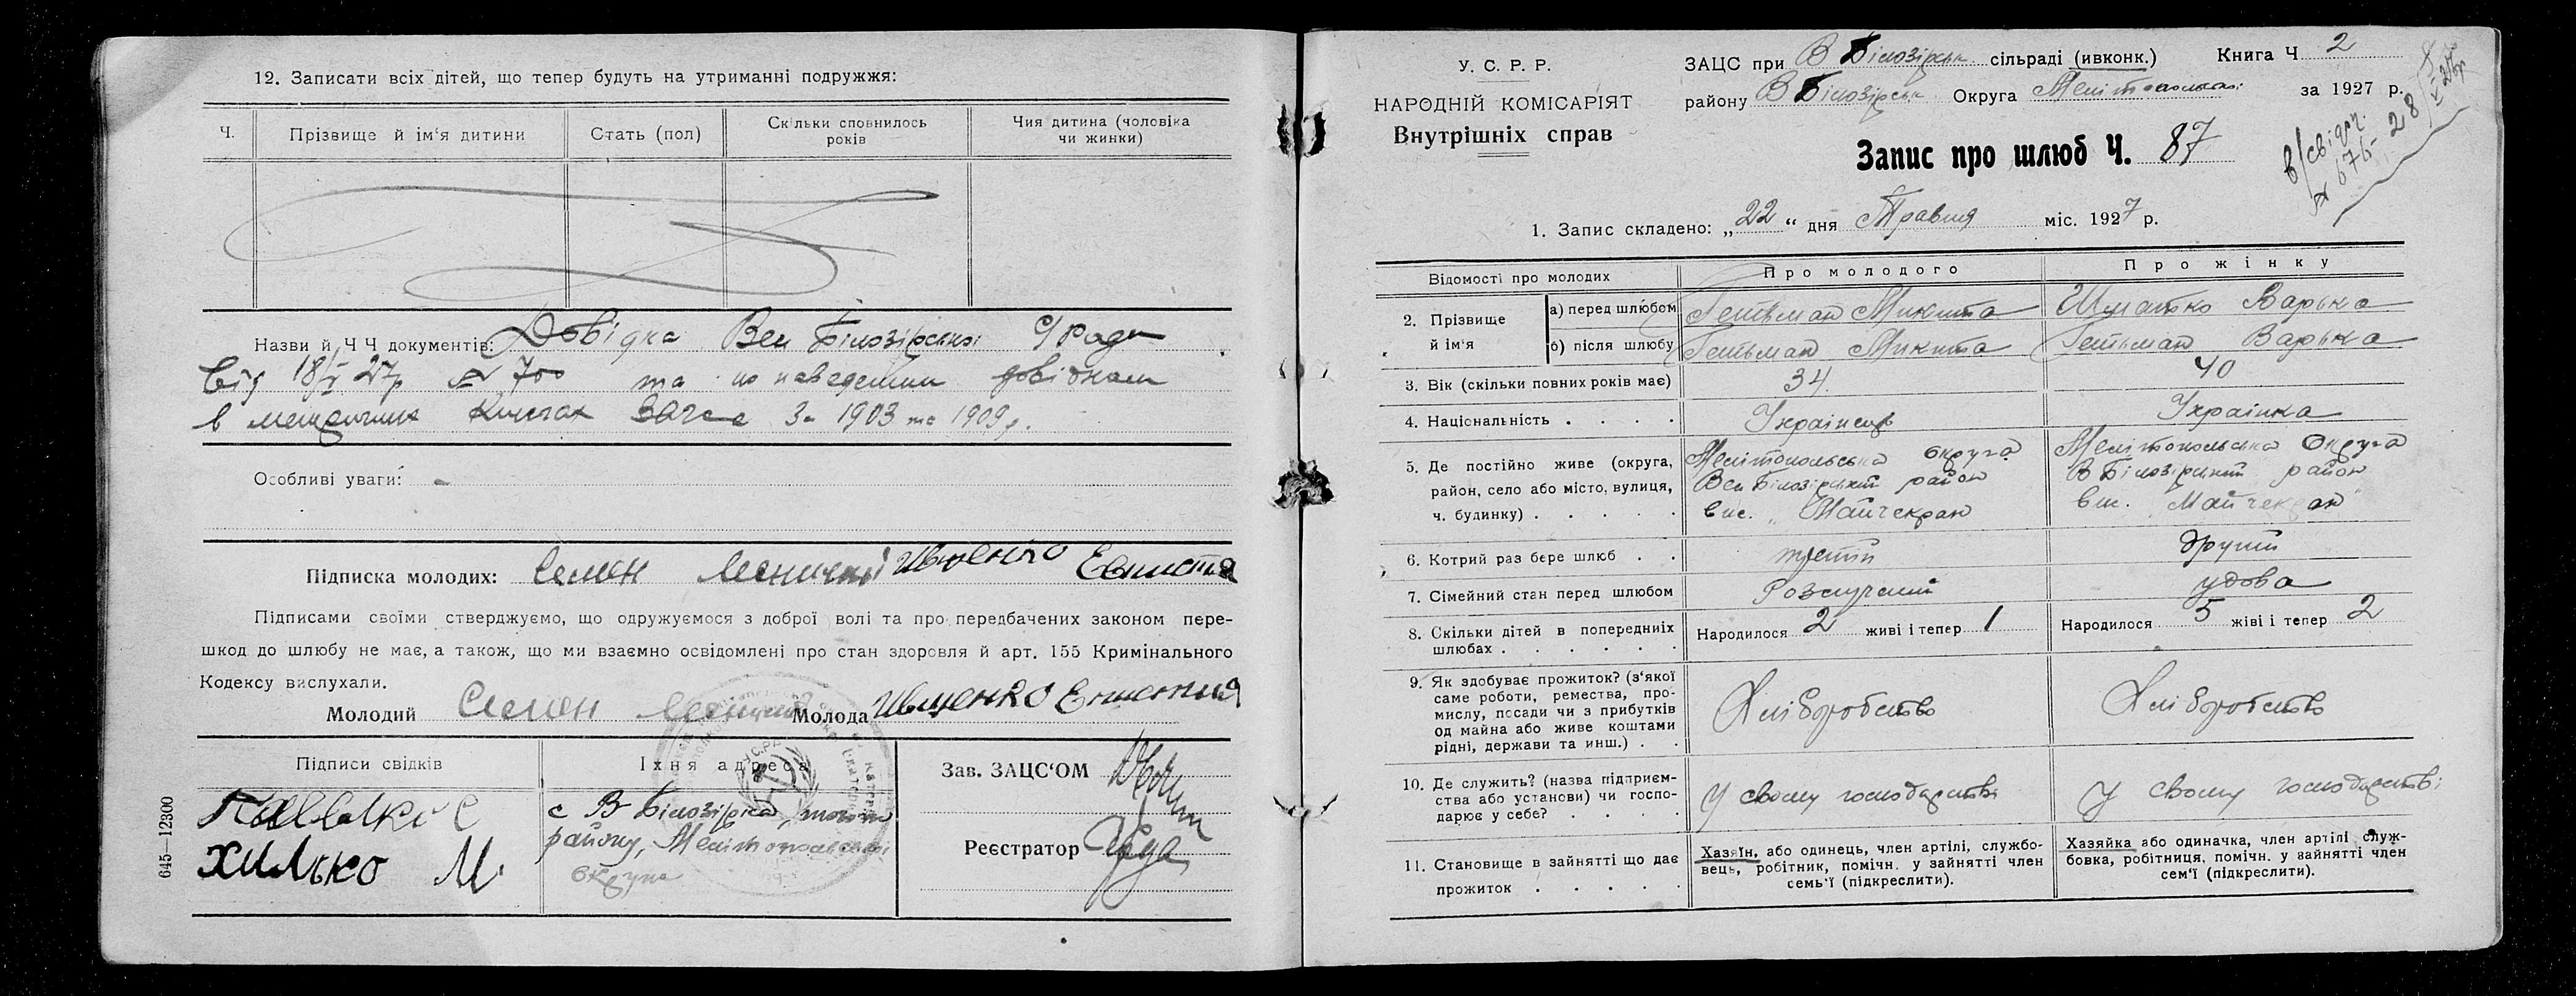 12. Записати всіх дітей, що тепер будуть на утриманні подружжя:
Ч.
Прізвище й ім‘я дитини
Стать (пол)
Скільки сповнилось років
Чия дитина (чоловіка чи жинки)
Назви й Ч Ч документів: Довідка Вел Білозірської С/ради
від 18/V 27р № 700 та по наведеним довідкам
в метричних книгах ЗАГСа За 1903 та 1909 р.
Особливі уваги: -
Підписка молодих: Семен
Підписами своїми стверджуємо, що одружуємося з доброї волі та про передбачених законом пере-
шкод до шлюбу не має, а також, що ми взаємно освідомлені про стан здоровля й арт. 155 Кримінального
Кодексу вислухали.
Молодий Семен Молода Іващенко
Підписи свідків
Їхня адреса
Зав. ЗАЦС‘ОМ
с В-Білозірка, того ж
району, Мелітопольської
округи
Хилько М.
Реєстратор
645—12300
У. С. Р. Р.
НАРОДНІЙ КОМІСАРІЯТ
Внутрішніх справ
ЗАЦС при В Білозірськ сільраді (ивконк.) Книга Ч 2
району В Білозірськ Округа Мелітопольської за 1927 р.
Запис про шлюб Ч. 87
в/свідоч.
№ 676 28
1. Запис складено: „22“ дня Травня міс. 1927 р.
Відомості про молодих
Про молодого
Про жінку
2. Прізвище й ім‘я
а) перед шлюбом Гетьман Микита Шматко Варька
б) після шлюбу Гетьман Микита Гетьман Варька
3. Вік (скільки повних років має) 34. 40
4. Національність . . . . Українець Українка
5. Де постійно живе (округа, район, село або місто, вулиця, ч. будинку) . . . . .
Мелітопольська округа
Вел Білозірський район
вис. „Майчекрак
Мелітопольська Округа
В Білозірський район
вис. „Майчекрак“
6. Котрий раз бере шлюб . . третий другий
7. Сімейний стан перед шлюбом Розлучений удова
8. Скільки дітей в попередниіх шлюбах . . . . . .
Народилося 2 живі і тепер 1
Народилося 5 жіві і тепер 2
9. Як здобуває прожиток? (з‘якої саме роботи, ремества, про-
мислу, посади чи з прибутків
од майна або живе коштами
рідні, держави та инш.) . .
Хліборобство
Хліборобство
10. Де служить? (назва підприєм-
ства або установи) чи госпо-
дарює у себе? . . . .
У своему господарстві
У своему господарстві
11. Становище в зайнятті що дає
прожиток . . . . .
Хазяїн, або одинець, член артілі, службо-
вець, робітник, помічн. у зайнятті член
семь‘ї (підкреслити).
Хазяйка або одиначка, член артілі служ-
бовка, робітниця, помічн. у зайнятті член
сем‘ї (підкреслити).